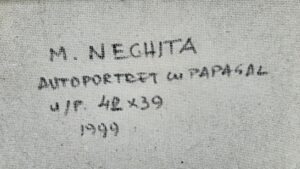 M. NECHITA
AUTOPORTRET cu PAPAGAL
u/P. 42x39
1999